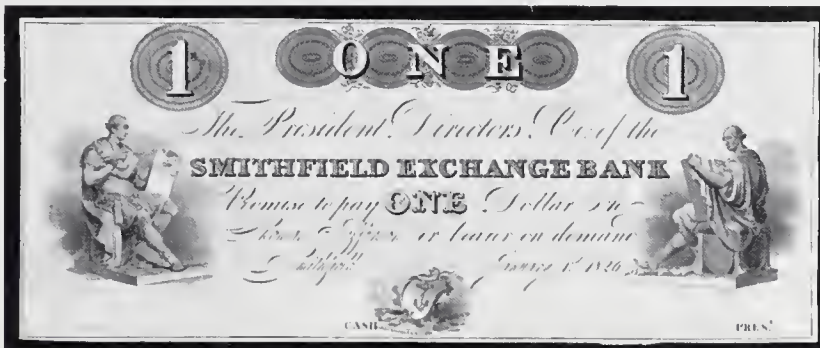 1 ONE 1
The President Directors & Co. of the
SMITHFIELD EXCHANGE BANK
Promise to pay ONE Dollar on
or bearer on demand
Smithfield January 1st 1826
CASHR. PREST.